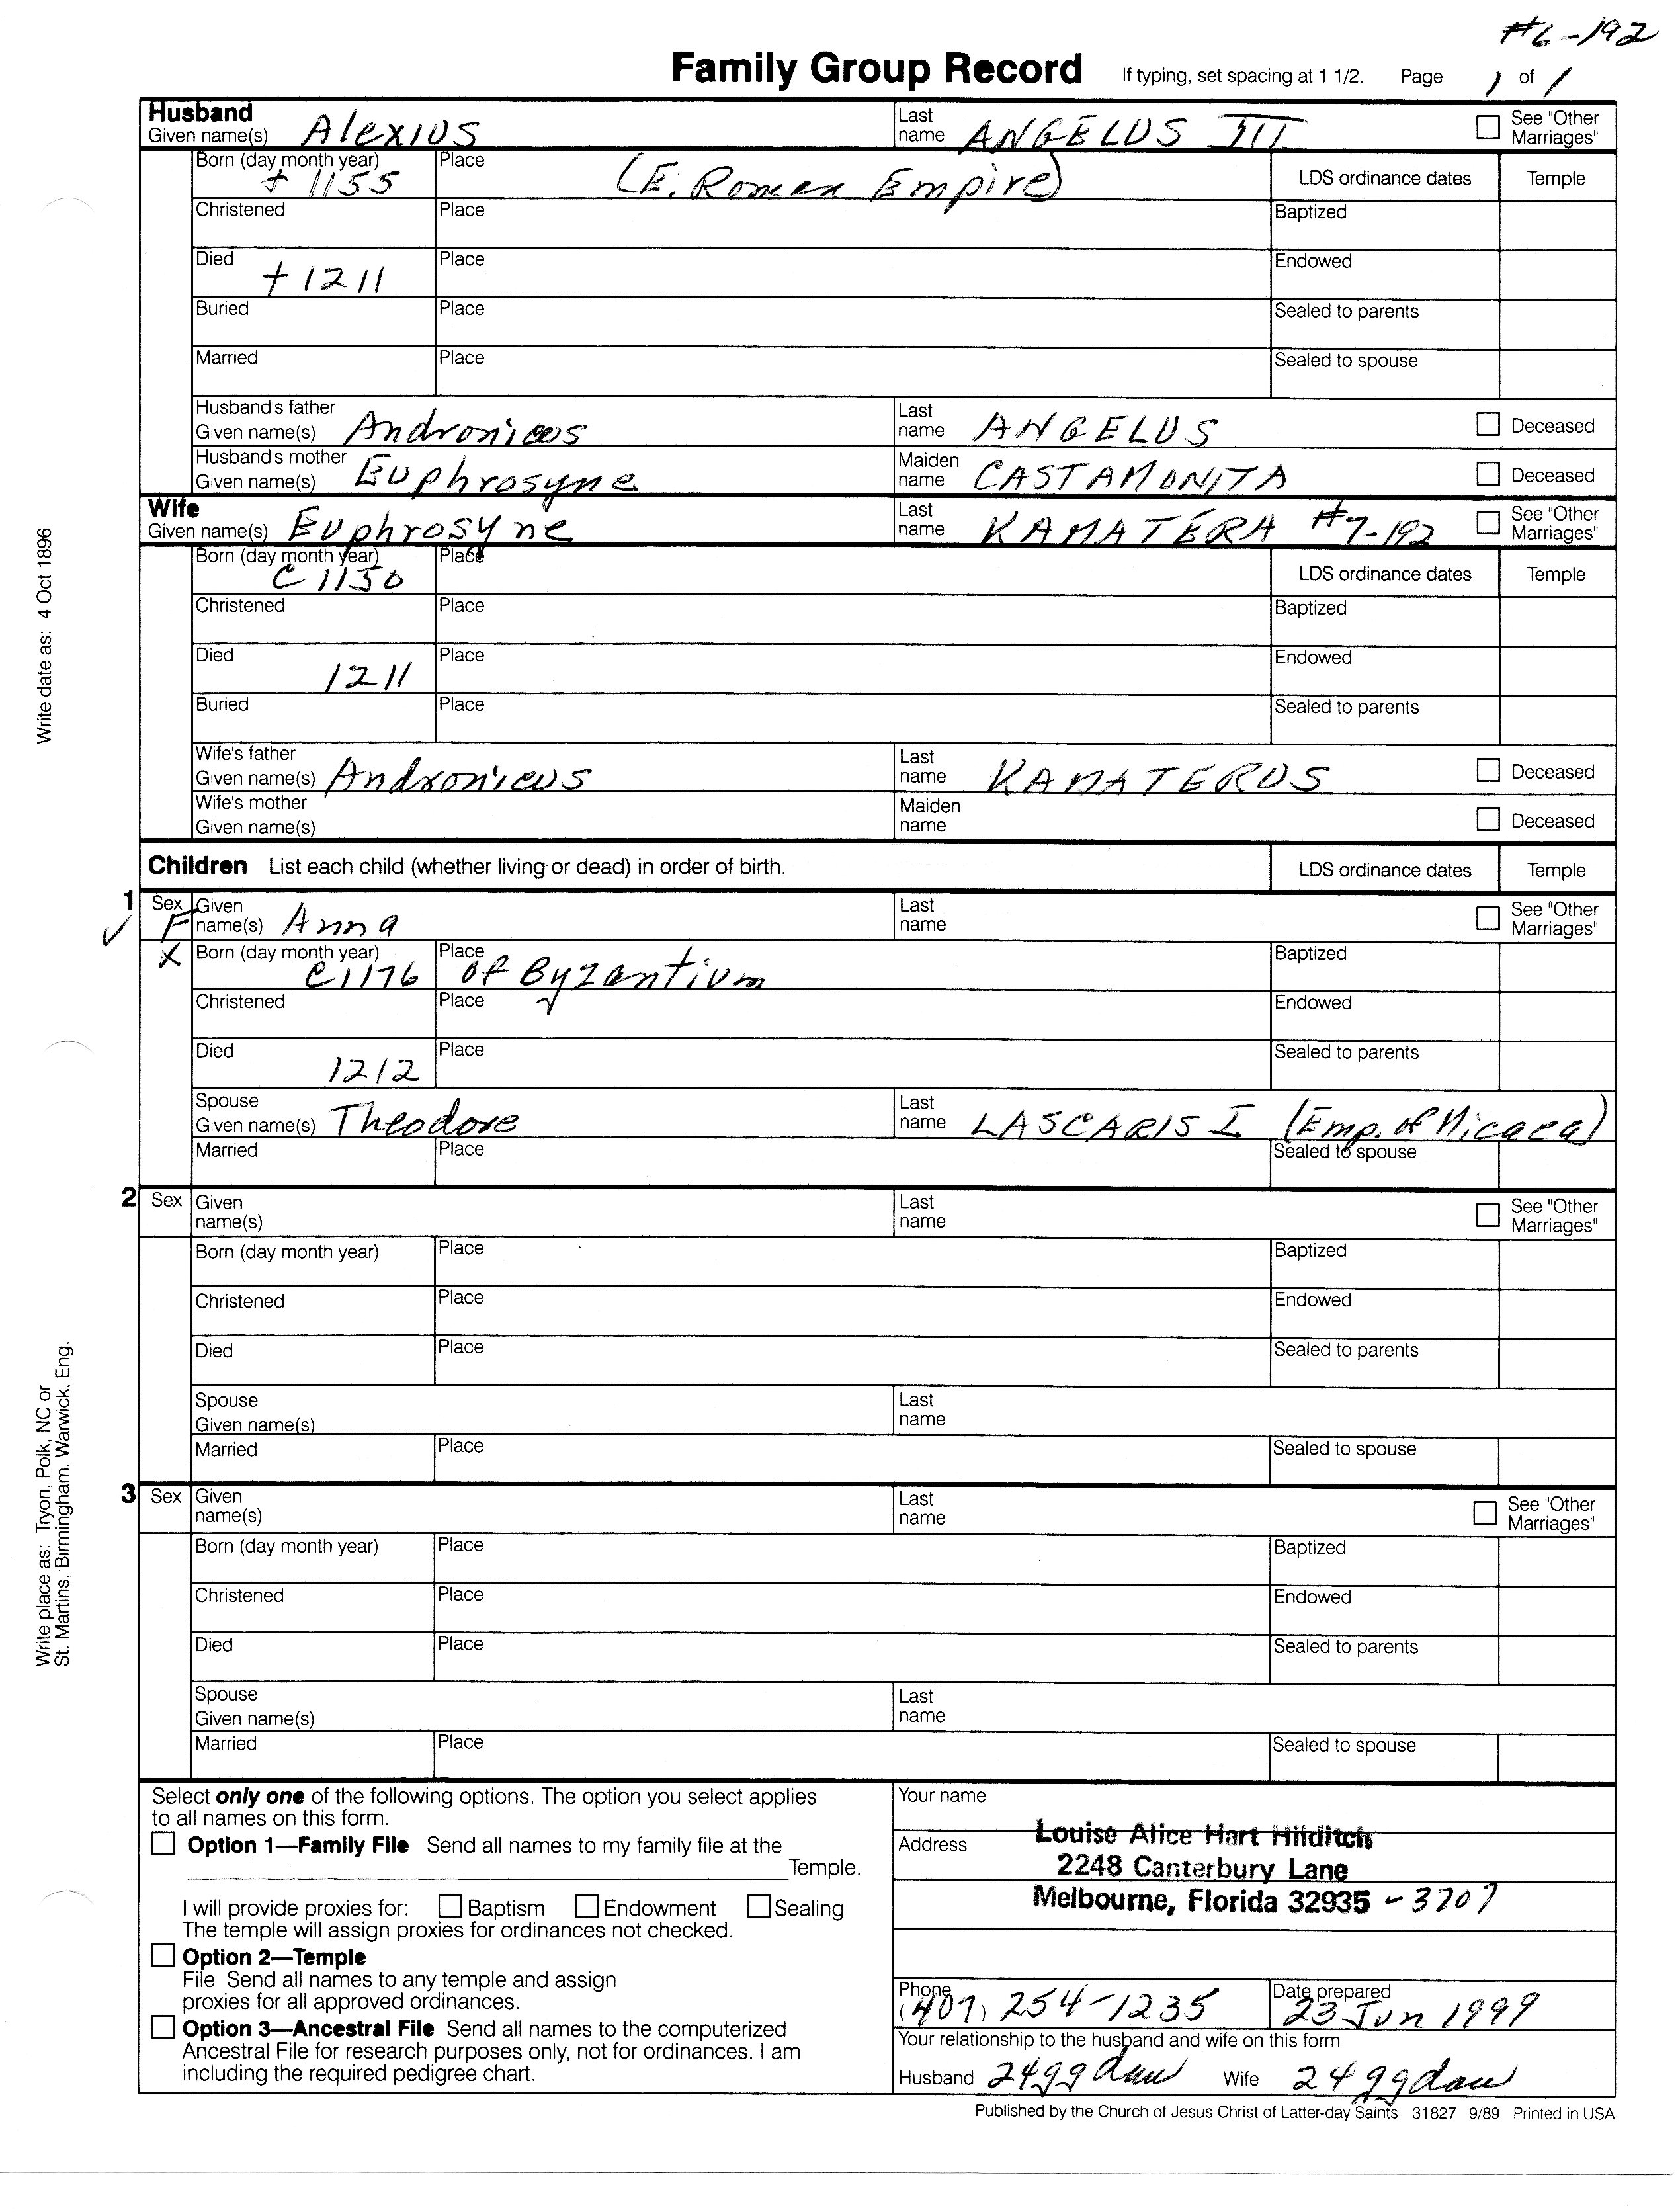 #6-192
Family Group Record If typing, set spacing at 1 1/2. Page 1 of 1
Husband
Given name(s) Alexius Last name ANGELUS III See "Other Marriages"
Born (day month year) + 1155 Place (E. Roman Empire) LDS ordinance dates Temple
Christened Place Baptized
Died + 1211 Place Endowed
Buried Place Sealed to parents
Married Place Sealed to spouse
Husband's father Given name(s) Andronicus Last name ANGELUS Deceased
Husband's mother Given name(s) Euphrosyne Maiden name CASTAMONITA Deceased
Wife
Given name(s) Euphrosyne Last name KAMATERA #7-192 See "Other Marriages"
Born (day month year) C 1150 Place LDS ordinance dates Temple
Christened Place Baptized
Died 1211 Place Endowed
Buried Place Sealed to parents
Wife's father Given name(s) Andronicus Last name KAMATEROS Deceased
Wife's mother Given name(s) Maiden name Deceased
Children List each child (whether living or dead) in order of birth. LDS ordinance dates Temple
1 Sex F Given name(s) Anna Last name See "Other Marriages"
X Born (day month year) C1176 Place of Byzantium Baptized
Christened Place Endowed
Died 1212 Place Sealed to parents
Spouse Given name(s) Theodore Last name LASCARIS I (Emp. of Nicaea)
Married Place Sealed to spouse
2 Sex Given name(s) Last name See "Other Marriages"
Born (day month year) Place Baptized
Christened Place Endowed
Died Place Sealed to parents
Spouse Given name(s) Last name
Married Place Sealed to spouse
3 Sex Given name(s) Last name See "Other Marriages"
Born (day month year) Place Baptized
Christened Place Endowed
Died Place Sealed to parents
Spouse Given name(s) Last name
Married Place Sealed to spouse
Select only one of the following options. The option you select applies
to all names on this form.
Option 1—Family File Send all names to my family file at the
Temple.
I will provide proxies for: Baptism Endowment Sealing
The temple will assign proxies for ordinances not checked.
Option 2—Temple
File Send all names to any temple and assign
proxies for all approved ordinances.
Option 3—Ancestral File Send all names to the computerized
Ancestral File for research purposes only, not for ordinances. I am
including the required pedigree chart.
Your name
Address Louise Alice Hart Hilditch
2248 Canterbury Lane
Melbourne, Florida 32935 - 3207
Phone (407) 254-1235 Date prepared 23 Jun 1999
Your relationship to the husband and wife on this form
Husband 24gg dau Wife 24ggdau
Published by the Church of Jesus Christ of Latter-day Saints 31827 9/89 Printed in USA
Write date as: 4 Oct 1896
Write place as: Tryon, Polk, NC or
St. Martins, Birmingham, Warwick, Eng.